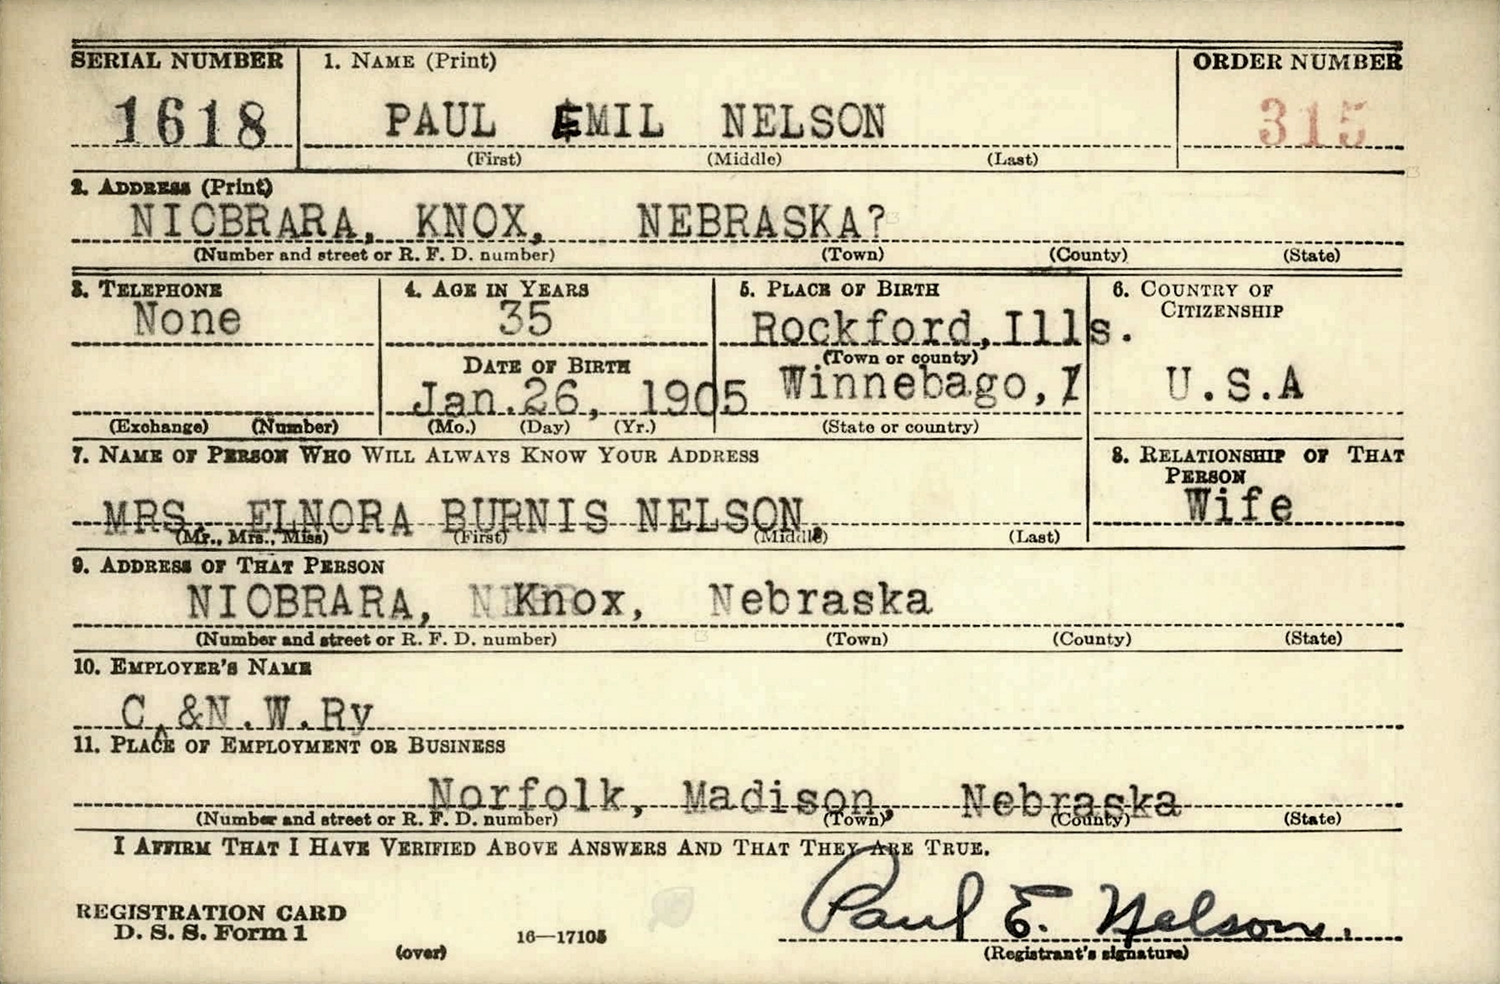 SERIAL NUMBER 1. NAME (Print) ORDER NUMBER
1618 PAUL EMIL NELSON 315
(First) (Middle) (Last)
2. ADDRESS (Print)
NIOBRARA, KNOX, NEBRASKA?
(Number and street or R. F. D. number) (Town) (County) (State)
3. TELEPHONE 4. AGE IN YEARS 5. PLACE OF BIRTH 6. COUNTRY OF
CITIZENSHIP
None 35 Rockford, Ills.
DATE OF BIRTH (Town or county)
Jan.26, 1905 Winnebago, U.S.A
(Exchange) (Number) (Mo.) (Day) (Yr.) (State or country)
7. NAME OF PERSON WHO WILL ALWAYS KNOW YOUR ADDRESS 8. RELATIONSHIP OF THAT
PERSON
MRS. ELNORA BURNIS NELSON, Wife
(Mr., Mrs., Miss) (First) (Middle) (Last)
9. ADDRESS OF THAT PERSON
NIOBRARA, Knox, Nebraska
(Number and street or R. F. D. number) (Town) (County) (State)
10. EMPLOYER'S NAME
C.&N.W.Ry
11. PLACE OF EMPLOYMENT OR BUSINESS
Norfolk, Madison, Nebraska
(Number and street or R. F. D. number) (Town) (County) (State)
I AFFIRM THAT I HAVE VERIFIED ABOVE ANSWERS AND THAT THEY ARE TRUE.
Paul E. Nelson.
REGISTRATION CARD
D. S. S. Form 1
(over) 16—17105 (Registrant's signature)